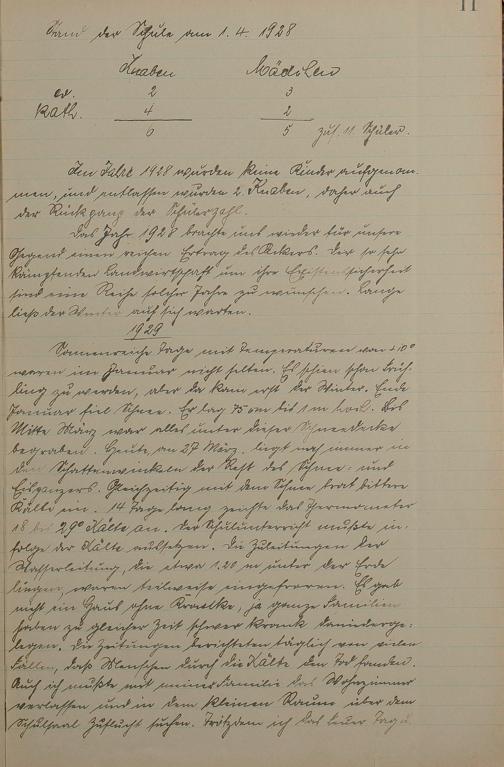 11
Stand der Schule am 1. 4. 1928
Knaben Mädchen
ev. 2 3
Kath. 4 2
6 5 zus. 11 Schüler.
Im Jahre 1928 wurden keine Kinder aufgenom-
men, und entlassen wurden 2 Knaben, daher auch
der Rückgang der Schülerzahl.
Das Jahr 1928 brachte uns wieder für unsere
Gegend einen reichen Ertrag des Ackers. Der so sehr
kämpfenden Landwirtschaft um ihre Existenzsicherheit
sind eine Reihe solcher Jahre zu wünschen. Lange
ließ der Winter auf sich warten.
1929
Sonnenreiche Tage mit Temperaturen von +10°
waren im Januar nicht selten. Es schien schon Früh-
ling zu werden, aber da kam erst der Winter. Ende
Januar fiel Schnee. Er lag 75 cm bis 1 m hoch. Bis
Mitte März war alles unter dieser Schneedecke
begraben. Heute, am 27 März, liegt noch immer in
den Schattenwinkeln der Rest des Schnee- und
Eispanzers. Gleichzeitig mit dem Schnee trat bittere
Kälte ein. 14 Tage lang zeigte das Thermometer
18 bis 29° Kälte an. Der Schulunterricht mußte in-
folge der Kälte aussetzen. Die Zuleitungen der
Wasserleitung, die etwa 1.20 m unter der Erde
liegen, waren teilweise eingefroren. Es gab
nicht ein Haus ohne Kranke, ja ganze Familien
haben zu gleicher Zeit schwer krank daniederge-
legen. Die Zeitungen berichteten täglich von vielen
Fällen, daß Menschen durch die Kälte den Tod fanden.
Auch ich mußte mit meiner Familie das Wohnzimmer
verlassen und in dem kleinen Raume über dem
Schulsaal Zuflucht suchen. Trotzdem ich das Feuer Tag u.